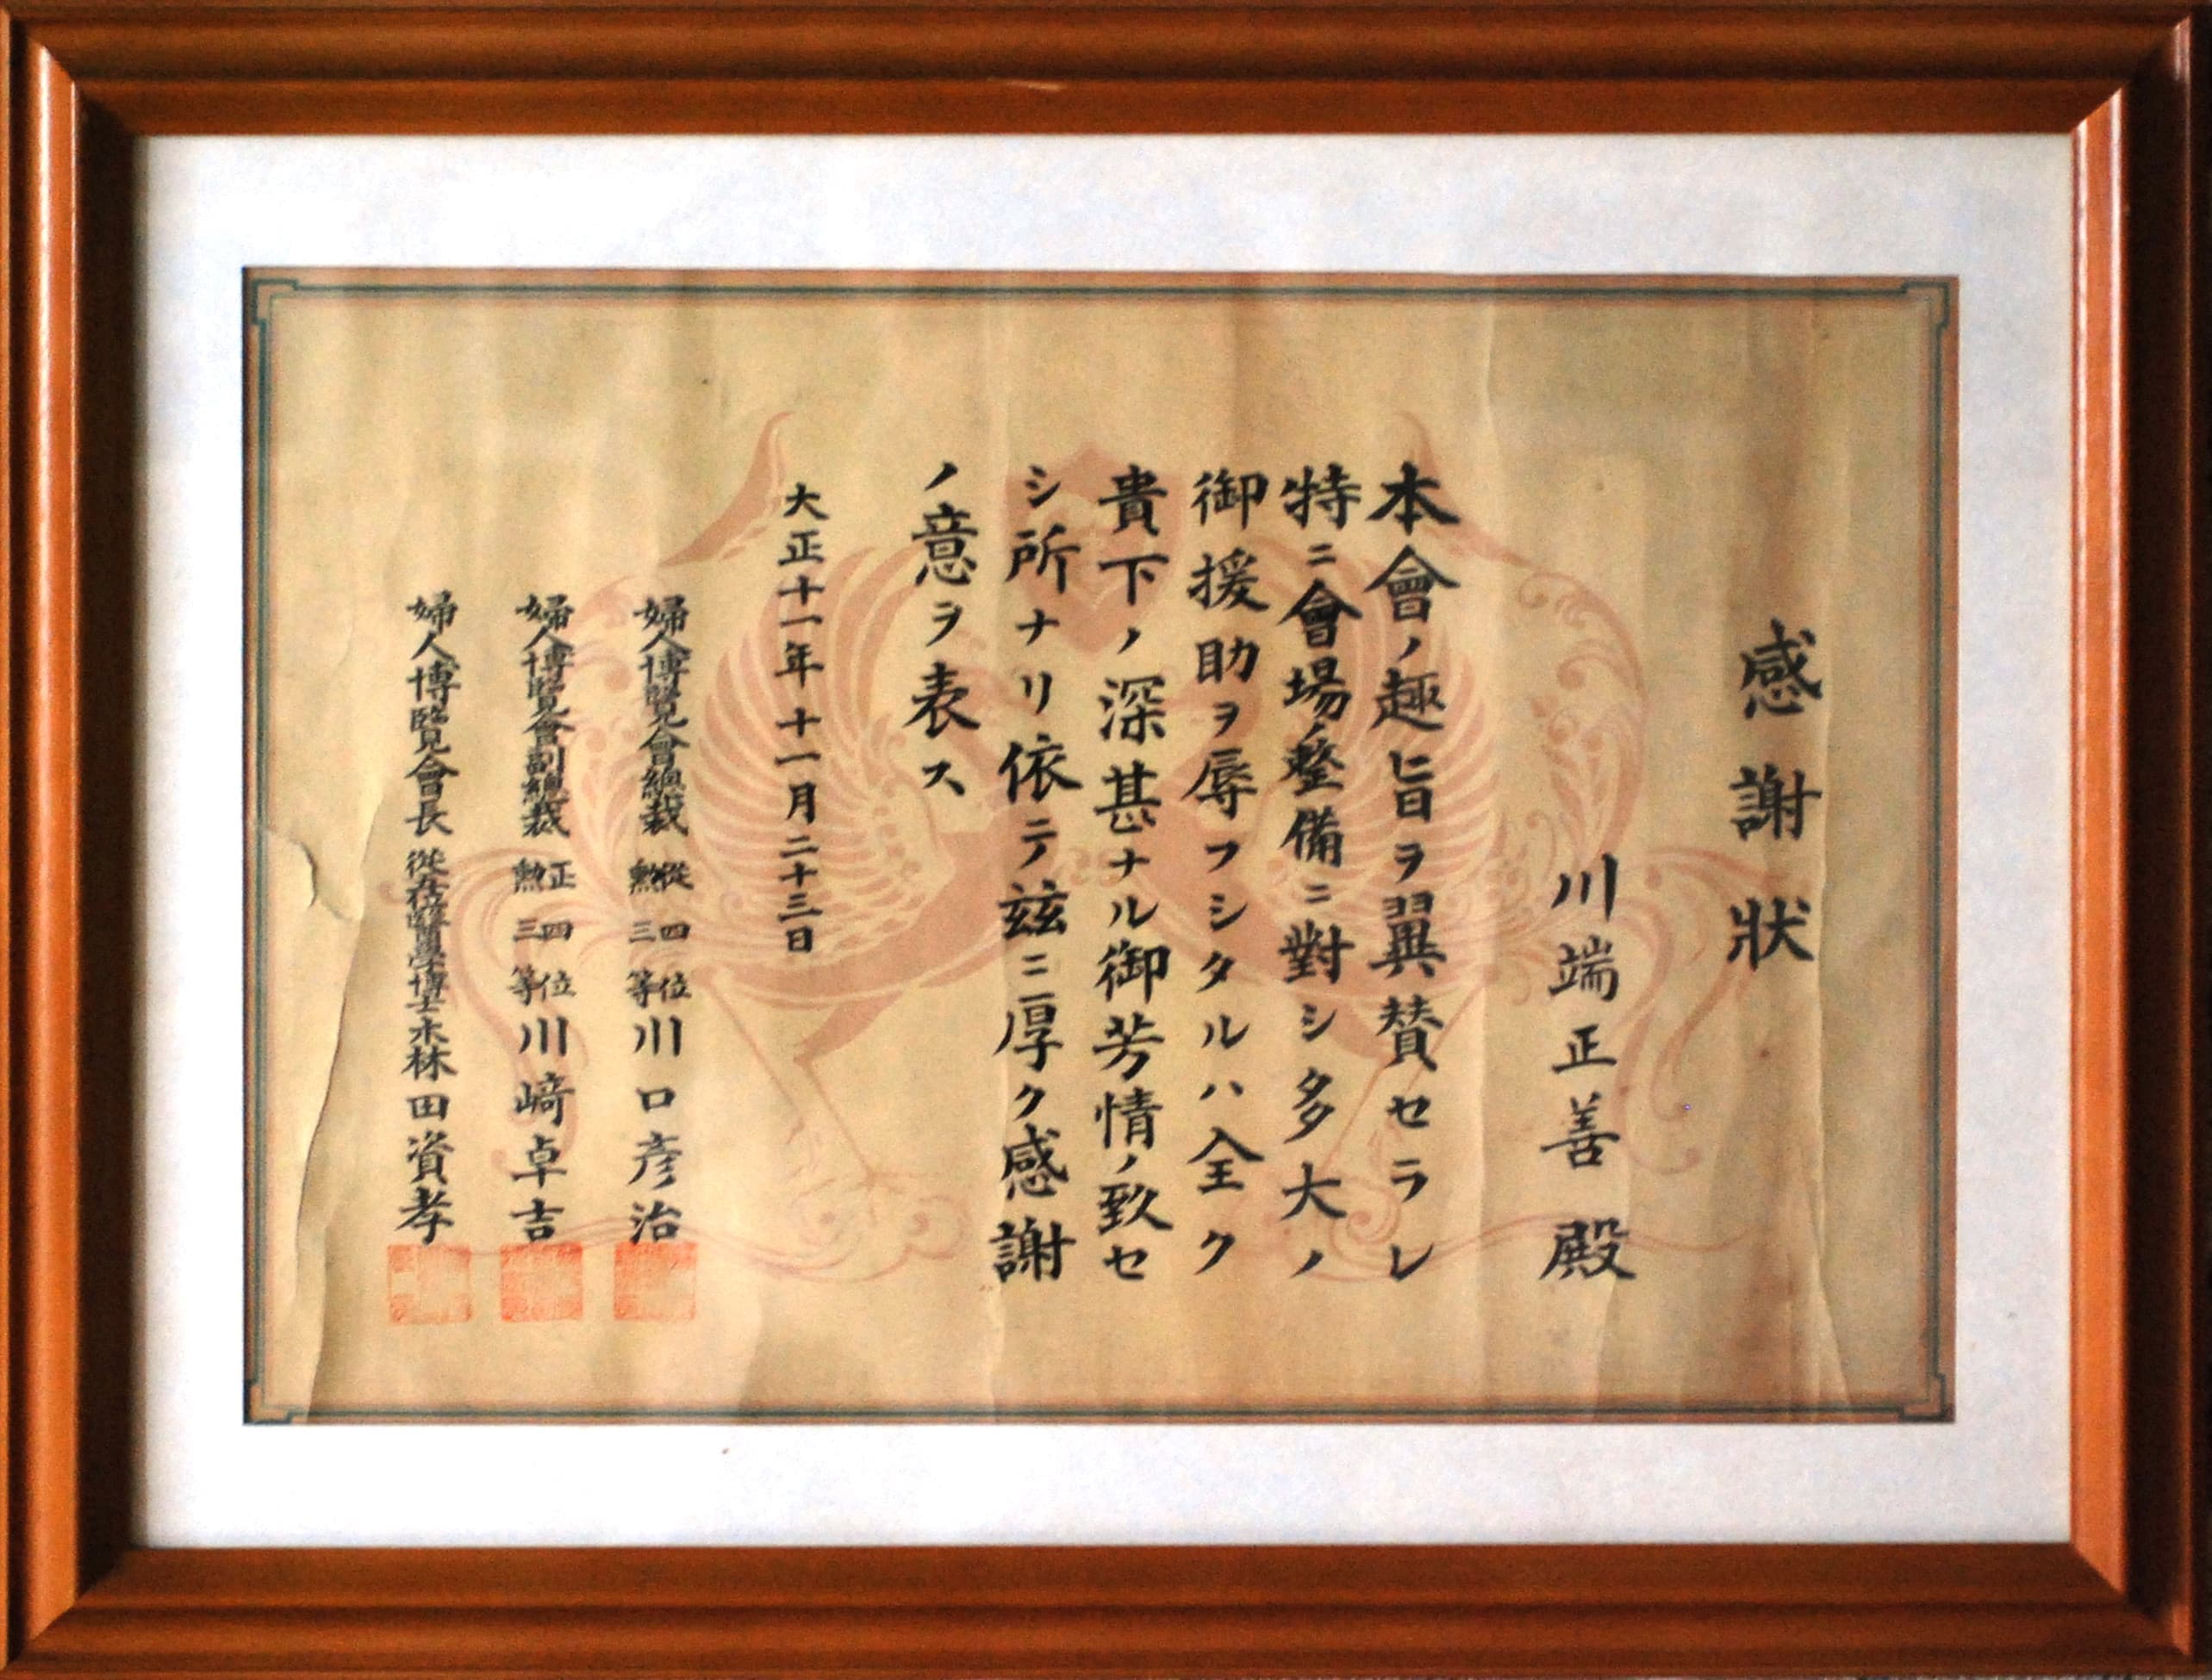 感謝狀
川端正善殿
本會ノ趣旨ヲ翼賛セラレ
特ニ會場ノ整備ニ對シ多大ノ
御援助ヲ辱フシタルハ全ク
貴下ノ深甚ナル御芳情ノ致セ
シ所ナリ依テ茲ニ厚ク感謝
ノ意ヲ表ス
大正十一年十一月二十三日
婦人博覽會總裁 從四位勲三等 川口彦治
婦人博覽會副總裁 正四位勲三等 川﨑卓吉
婦人博覽會長 醫學博士 林田資孝